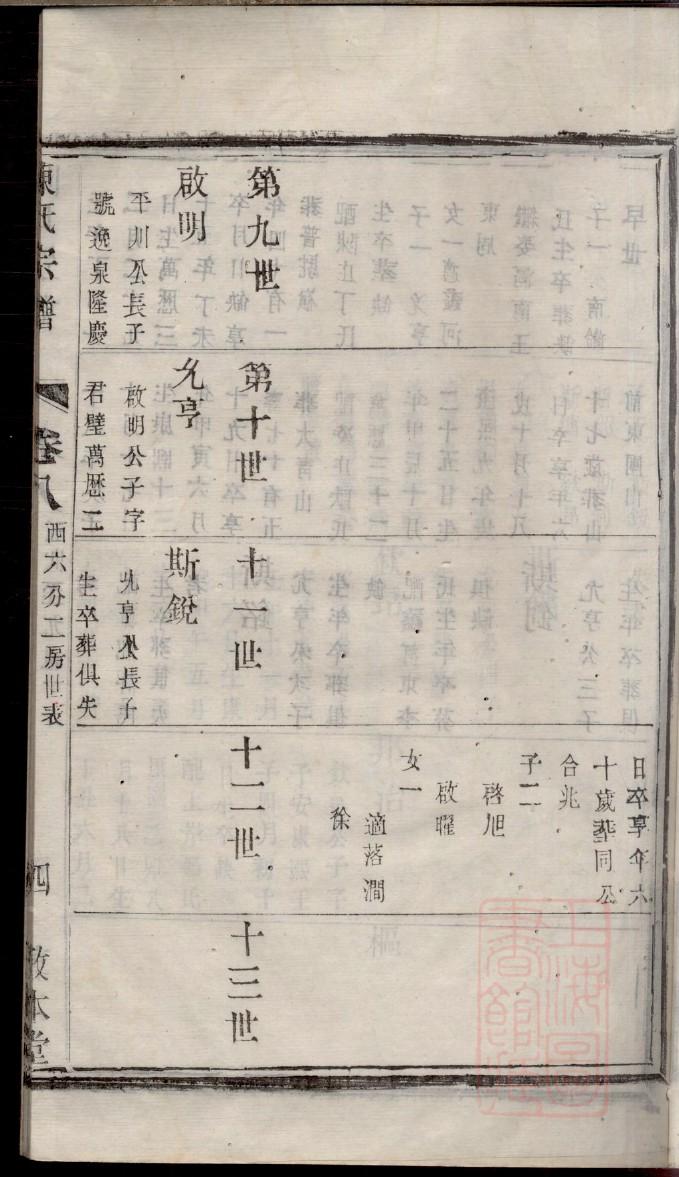 日卒享年六
十歲葬同公
合兆
子二
啓旭
啟曜
女一
適落澗
徐
第九世
第十世
十一世
十二世
十三世
啟明
平則公長子
號逸泉隆慶
允亨
啟明公子字
君璧萬厯二
斯銳
允亨公長子
生卒葬俱失
陳氏宗譜
卷八
西六分二房世表
四
敦本堂
上海圖書館藏